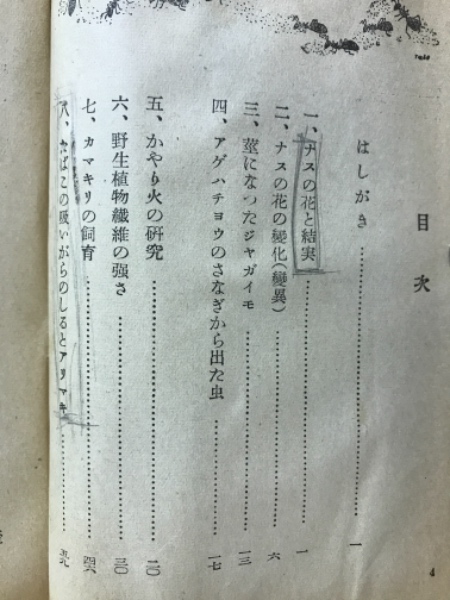 目次
はしがき……………………一
一、ナスの花と結実……………………一
二、ナスの花の變化(變異)……………………六
三、莖になったジャガイモ……………………一三
四、アゲハチョウのさなぎから出た虫……………………一七
五、かやり火の研究……………………二〇
六、野生植物繊維の强さ……………………三〇
七、カマキリの飼育……………………四六
八、たばこの吸いがらのしるとアリマキ……………………五九
4